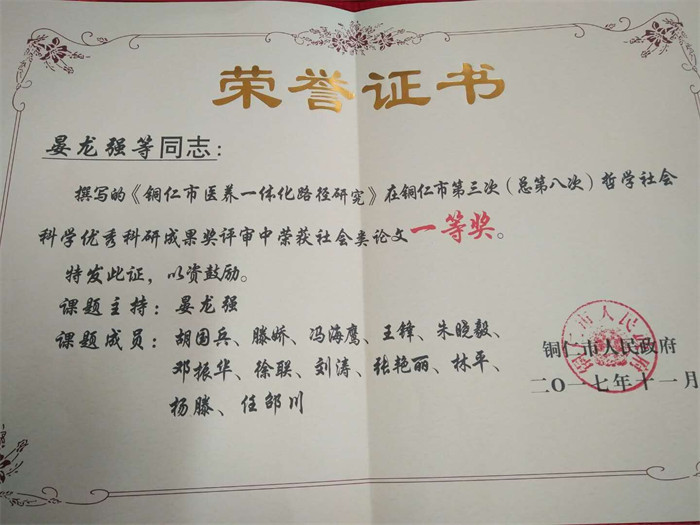 荣誉证书
晏龙强等同志：
撰写的《铜仁市医养一体化路径研究》在铜仁市第三次（总第八次）哲学社会
科学优秀科研成果奖评审中荣获社会类论文一等奖。
特发此证，以资鼓励。
课题主持：晏龙强
课题成员：胡国兵、滕娇、冯海鹰、王锋、朱晓毅、
邓振华、徐联、刘涛、张艳丽、林平、
杨滕、任邹川
铜仁市人民政府
二〇一七年十一月